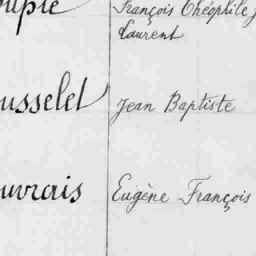 François Théophile
Laurent
usselet Jean Baptiste
uvrais Eugène François